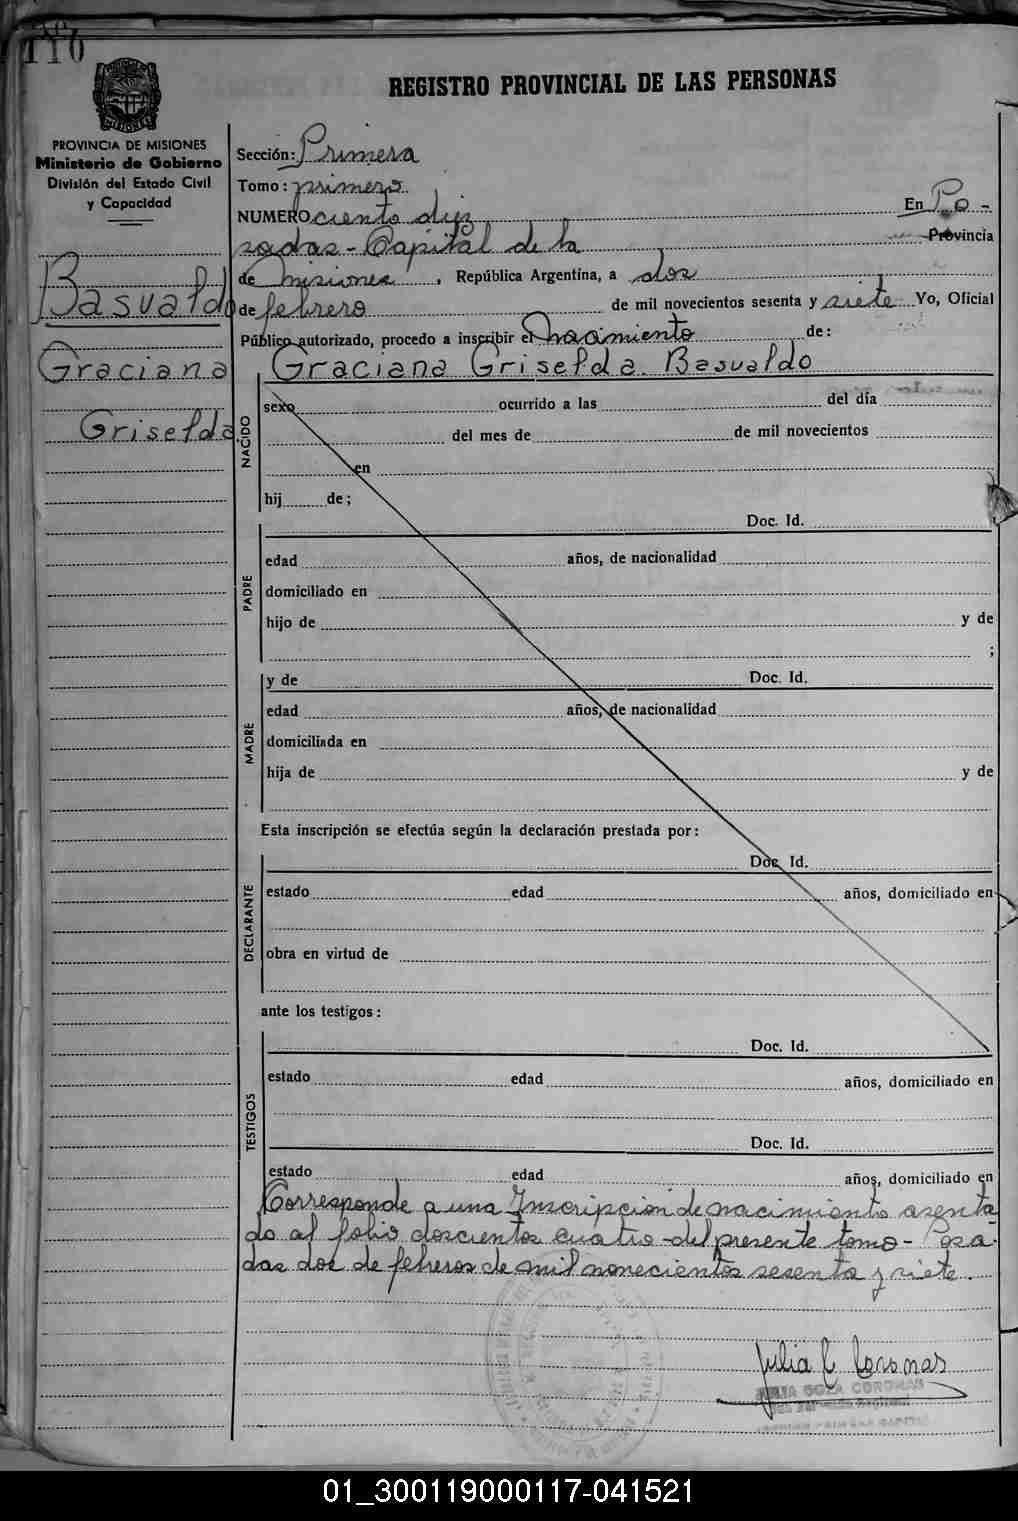 110
MISIONES
PROVINCIA DE MISIONES
Ministerio de Gobierno
División del Estado Civil
y Capacidad
Basualdo
Graciana
Griselda
REGISTRO PROVINCIAL DE LAS PERSONAS
Sección: Primera
Tomo: primero
NUMERO ciento diez En Po-
sadas - Capital de la Provincia
de misiones, República Argentina, a dos
de febrero de mil novecientos sesenta y siete Yo, Oficial
Público autorizado, procedo a inscribir el Nacimiento de:
Graciana Griselda Basualdo
NACIDO
sexo ocurrido a las del día
del mes de de mil novecientos
en
hij de;
PADRE
Doc. Id.
edad años, de nacionalidad
domiciliado en
hijo de y de
;
MADRE
y de Doc. Id.
edad años, de nacionalidad
domiciliada en
hija de y de
Esta inscripción se efectúa según la declaración prestada por:
DECLARANTE
Doc. Id.
estado edad años, domiciliado en
obra en virtud de
ante los testigos:
TESTIGOS
Doc. Id.
estado edad años, domiciliado en
Doc. Id.
estado edad años, domiciliado en
Corresponde a una Inscripcion de nacimiento asenta-
do al folio doscientos cuatro - del presente tomo - Posa-
das dos de febreros de mil novecientos sesenta y siete.
Julia C Coronas
JULIA CORONAS
01_300119000117-041521